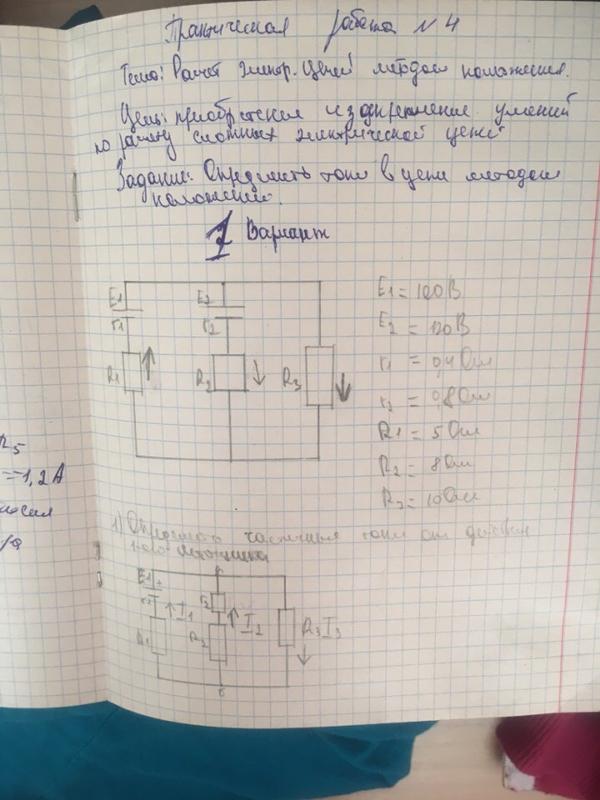 Практическая работа №4
Тема: Расчёт электр. цепей методом наложения.
Цель: приобретение и закрепление умений
по расчёту сложных электрической цепей
Задание: Определить токи в цепи методом
наложений.
1 Вариант
E1 E2
r1 r2
R1 R2 R3
E1 = 100В
E2 = 120В
r1 = 0,4 Ом
r2 = 0,8 Ом
R1 = 5 Ом
R2 = 8 Ом
R3 = 10 Ом
R5
= -1,2 А
1) Определить частичные токи от действия
источника
E1 +
r1 I1 r2
R1 R2 I2 R3 I3